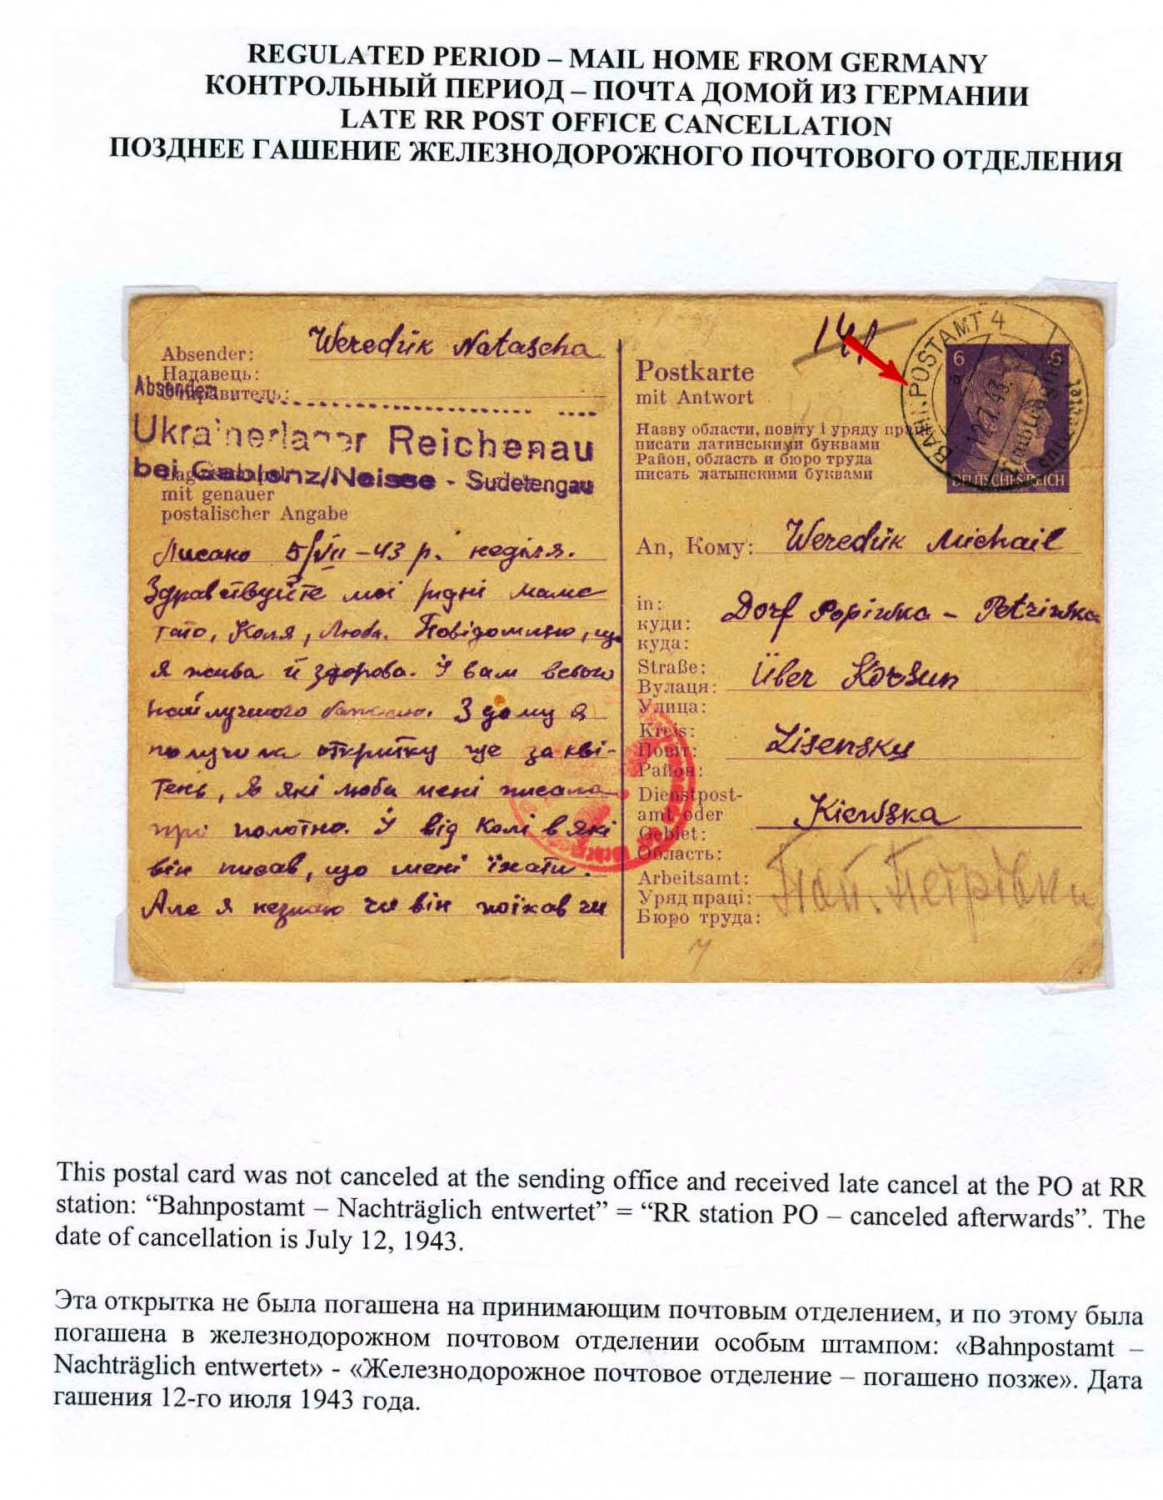 REGULATED PERIOD – MAIL HOME FROM GERMANY
КОНТРОЛЬНЫЙ ПЕРИОД – ПОЧТА ДОМОЙ ИЗ ГЕРМАНИИ
LATE RR POST OFFICE CANCELLATION
ПОЗДНЕЕ ГАШЕНИЕ ЖЕЛЕЗНОДОРОЖНОГО ПОЧТОВОГО ОТДЕЛЕНИЯ
Absender: Weredük Natascha
Надавець:
Absender
Отправитель:
Ukrainerlager Reichenau
bei Gablonz/Neisse - Sudetengau
mit genauer
postalischer Angabe
Писано 5/VII – 43 р. неділя.
Здравствуйте мої рідні мамо
тато, Коля, Люба. Повідомляю, що
я жива й здорова. І вам всього
найлучшого бажаю. З дому я
получила откритку ще за кві-
тень, в які люба мені писала
про полотно. І від Колі в які
він писав, що мені їхати.
Але я незнаю чи він поїхав чи
141
Postkarte
mit Antwort
Назву области, повіту і уряду праці
писати латинськими буквами
Район, область и бюро труда
писать латынскими буквами
BAHNPOSTAMT 4
12.7.43
6 6
DEUTSCHES REICH
An, Кому: Weredük Michail
in: Dorf Popiwka – Petriwka
куди:
куда:
Straße: Über Korsun
Вулаця:
Улица:
Kreis: Lisensky
Повіт:
Район:
Dienstpost-
amt oder Kiewska
Gebiet:
Область:
Arbeitsamt:
Уряд праці: Поп. Петрівки
Бюро труда:
This postal card was not canceled at the sending office and received late cancel at the PO at RR
station: “Bahnpostamt – Nachträglich entwertet” = “RR station PO – canceled afterwards”. The
date of cancellation is July 12, 1943.
Эта открытка не была погашена на принимающим почтовым отделением, и по этому была
погашена в железнодорожном почтовом отделении особым штампом: «Bahnpostamt –
Nachträglich entwertet» - «Железнодорожное почтовое отделение – погашено позже». Дата
гашения 12-го июля 1943 года.